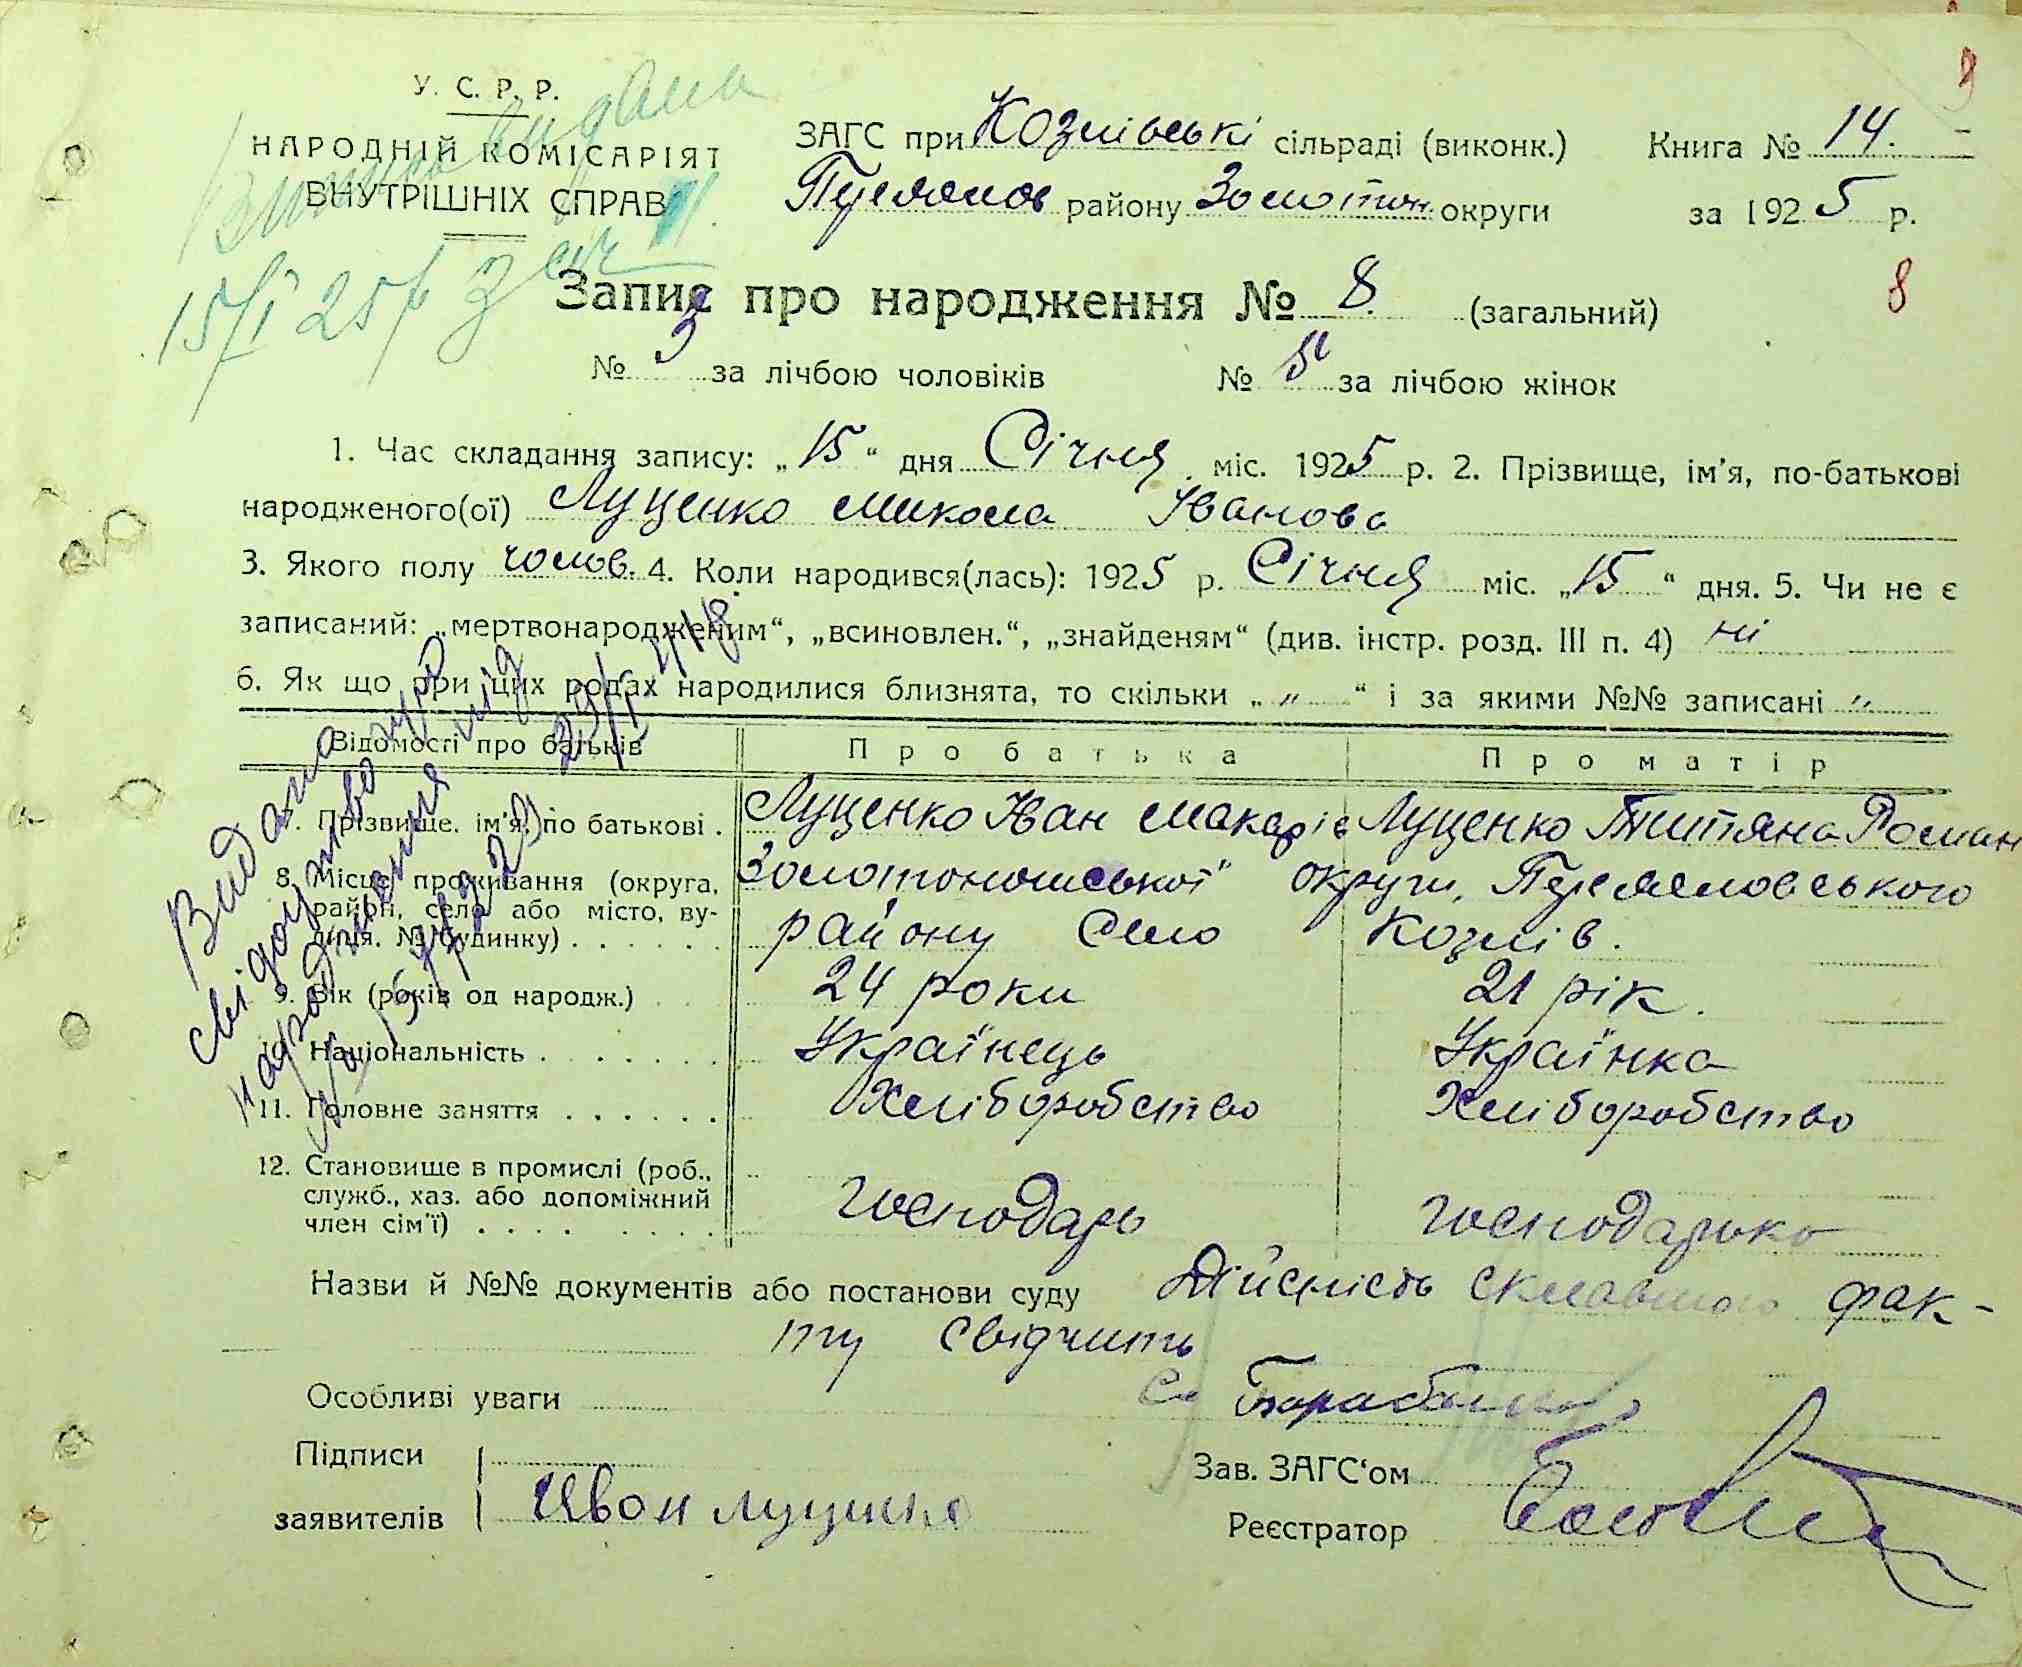 У. С. Р. Р.
НАРОДНІЙ КОМІСАРІЯТ
ВНУТРІШНІХ СПРАВ
Виписка видана
15/І 25 р
ЗАГС при Козлівські сільраді (виконк.) Книга № 14.
Переяслов району Золотон. округи за 1925 р.
8
Запис про народження № 8. (загальний)
№ 3 за лічбою чоловіків № 5 за лічбою жінок
1. Час складання запису: „15“ дня Січня міс. 1925 р. 2. Прізвище, ім'я, по-батькові
народженого(ої) Луценко Микола Іванова
3. Якого полу чолов. 4. Коли народився(лась): 1925 р. Січня міс. „15“ дня. 5. Чи не є
записаний: „мертвонародженим“, „всиновлен.“, „знайденям“ (див. інстр. розд. III п. 4) ні
6. Як що при цих родах народилися близнята, то скільки „ „ “ і за якими №№ записані „
Відомості про батьків Про батька Про матір
7. Прізвище. ім'я, по батькові . Луценко Іван Макарів Луценко Титяна Роман
8. Місце проживання (округа, район, село або місто, вулиця. № будинку) . . . . . . Золотоношської округи, Переясловського
району Село Козлів.
9. Вік (років од народж.) 24 роки 21 рік.
10. Національність . . . . . . . Українець Українка
11. Головне заняття . . . . . . Хліборобство Хліборобство
12. Становище в промислі (роб., служб., хаз. або допоміжний член сім'ї) . . . . . . . . господарь господарька
Видано
свідоцтво
народження
Назви й №№ документів або постанови суду Дійсність склавшого фак-
ту свідчить
Особливі уваги
Підписи
заявителів Иван Луценко
Зав. ЗАГС'ом
Реєстратор